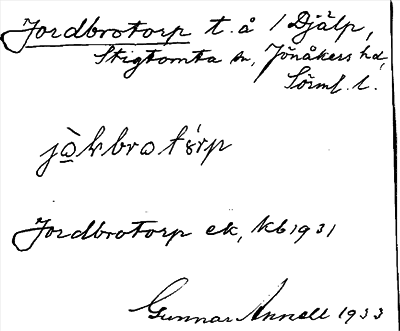 Jordbrotorp t. å 1 Djälp,
Stigtomta sn, Jönåkers hd,
Sörml. l.
jȯ̱kbrotörp
Jordbrotorp ek, kb 1931
Gunnar Annell 1933